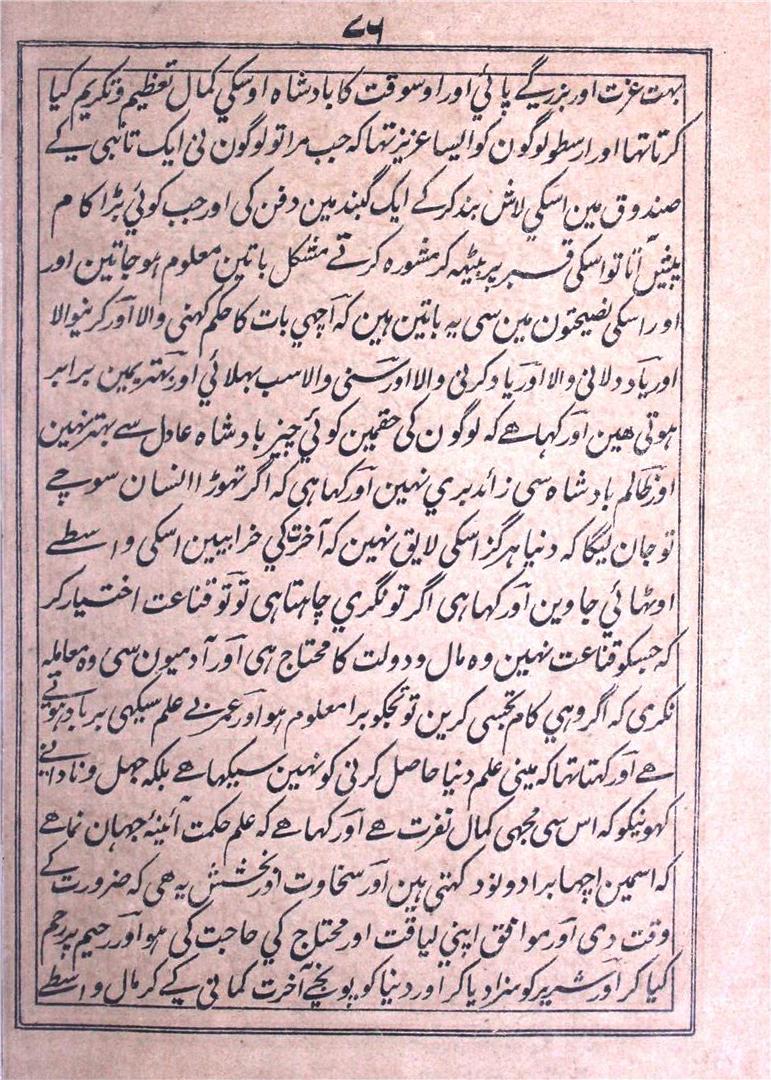 ۷۶
بہت عزت اور بزرگے پائي اور اوسوقت کا بادشاہ اوسکي کمال تعظیم و تکریم کیا
کرتا تہا اور ارسطو لوگون کو ایسا عزیز تہا کہ جب مرا تو لوگون نی ایک تانبی کے
صندوق مین اسکي لاش بند کر کے ایک گنبد مین دفن کی اور جب کوئي بڑا کام
پیش آتا تو اسکی قبر پر بیٹہہ کر مشورہ کرتے مشکل باتین معلوم ہو جاتین اور
اور اسکی نصیحتون مین سی یہ باتین ہین کہ اچہي بات کا حکم کہنی والا اور کرنیوالا
اور یاد دلانی والا اور یاد کرنی والا اور سنی والا سب بہلائي اور بہتریمین برابر
ہوتی ھین اور کہا ھے کہ لوگون کی حقمین کوئي چیز بادشاہ عادل سے بہتر نہین
اور ظالم بادشاہ سی زائد بري نہین اور کہا ہی کہ اگر تہوڑا انسان سوچے
تو جان لیگا کہ دنیا ہرگز اسکی لایق نہین کہ آخرت کي خرابیین اسکی واسطے
اوٹہائي جاوین اور کہا ہی اگر تونگري چاہتا ہی تو تو قناعت اختیار کر
کہ جسکو قناعت نہین وہ مال و دولت کا محتاج ہی اور آدمیون سی وہ معاملہ
نکری کہ اگر وہي کام تجہسی کرین تو تجکو برا معلوم ہو اور عمر بے علم سیکہی برباد ہوتے
ھے اور کہتا تہا کہ مینی علم دنیا حاصل کرنی کو نہین سیکہا ھے بلکہ جہل و نادانے
کہونیکو کہ اس سی مجہی کمال نفرت ھے اور کہا ھے کہ علم حکمت آئینۂ جہان نما ھے
کہ اسمین اچہا برا دونو دکہتی ہین اور سخاوت اور بخشش یہ ھی کہ ضرورت کے
وقت دی اور موافق اپنی لیاقت اور محتاج کي حاجت کی ہو اور رحیم پر رحم
کیا کر اور شریر کو سزا دیا کر اور دنیا کو پونجے آخرت کمانی کے کر مال واسطے